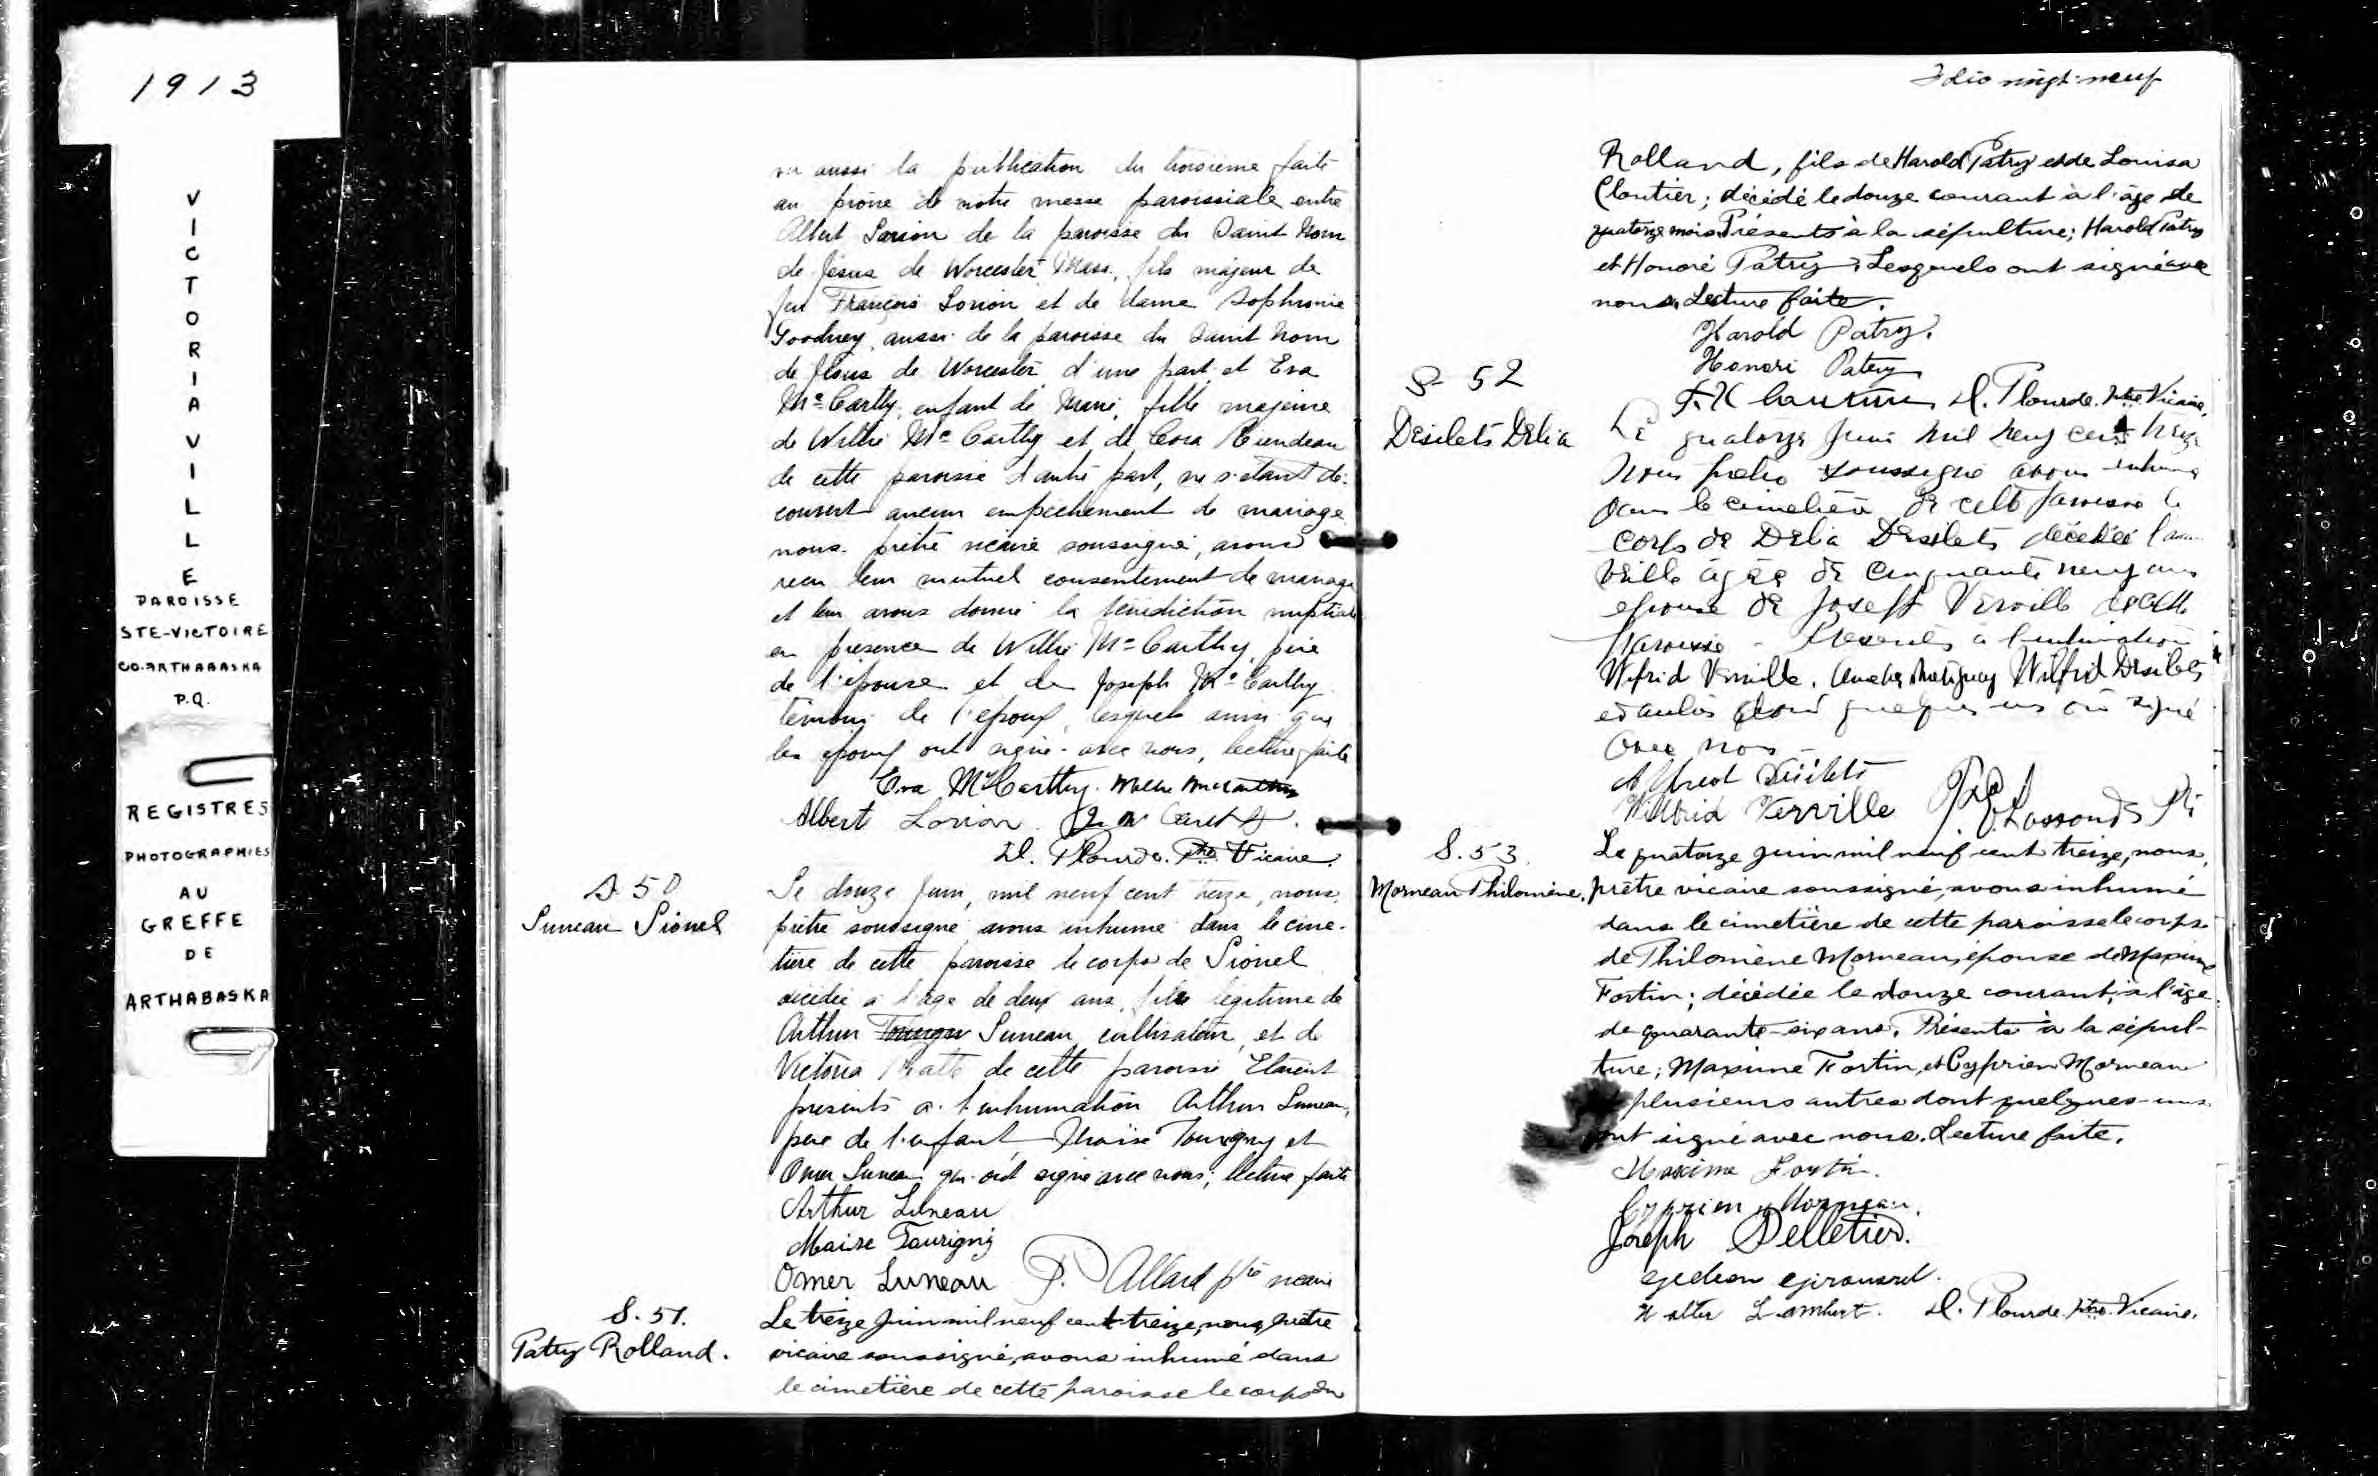 1913
VICTORIAVILLE
PAROISSE
STE-VICTOIRE
CO. ARTHABASKA
P.Q.
REGISTRES
PHOTOGRAPHIES
AU
GREFFE
DE
ARTHABASKA
vu aussi la publication du troisième faite
au prône de notre messe paroissiale entre
Albert Lorion de la paroisse du Saint Nom
de Jésus de Worcester Mass., fils majeur de
feu François Lorion et de dame Sophronie
Goodney, aussi de la paroisse du Saint Nom
de Jésus de Worcester d'une part et Eva
Mc Carthy, enfant de Marie, fille majeure
de Willie Mc Carthy et de Cora Riendeau
de cette paroisse d'autre part, ne s'étant dé-
couvert aucun empêchement de mariage
nous prêtre vicaire soussigné, avons
reçu leur mutuel consentement de mariage
et leur avons donné la bénédiction nuptiale
en présence de Willie Mc Carthy, père
de l'épouse et de Joseph Mc Carthy
témoin de l'époux, lesquels ainsi que
les époux ont signé avec nous, lecture faite
Eva McCarthy. Willie
Albert Lorion
D. Plourde. Ptre Vicaire.
S 50
Luneau Lionel
Le douze Juin, mil neuf cent treize, nous,
prêtre soussigné avons inhumé dans le cime-
tière de cette paroisse le corps de Lionel
décédé à l'âge de deux ans, fils légitime de
Arthur Luneau cultivateur, et de
Victoria de cette paroisse Etaient
présents à l'inhumation Arthur Luneau,
père de l'enfant, Tourigny et
Omer Luneau qui ont signé avec nous; lecture faite
Arthur Luneau
Tourigny
Omer Luneau P. Allard ptre vicaire
S. 51.
Patry Rolland.
Le treize Juin mil neuf cent treize, nous, prêtre
vicaire soussigné, avons inhumé dans
le cimetière de cette paroisse le corps de
Folio vingt-neuf
Rolland, fils de Harold Patry et de Louisa
Cloutier; décédé le douze courant à l'âge de
quatorze mois. Présents à la sépulture; Harold Patry
et Honoré Patry. Lesquels ont signé avec
nous. Lecture faite.
Harold Patry.
Honoré Patry
D. Plourde. Ptre Vicaire.
S- 52
Desilets Délia
Le quatorze Juin mil neuf cent treize
Nous prêtre soussigné avons inhumé
dans le cimetière de cette paroisse le
corps de Délia Desilets décédée
veille âgée de cinquante neuf ans
épouse de Joseph Verville de cette
paroisse - Présents à l'inhumation
Wilfrid Verville. Wilfrid Desilets
et autres dont quelques uns ont signé
avec nous -
Alfred Desilets
Wilfrid Verville
S. 53.
Morneau Philomène.
Le quatorze Juin mil neuf cent treize, nous,
prêtre vicaire soussigné, avons inhumé
dans le cimetière de cette paroisse le corps
de Philomène Morneau, épouse de Maxime
Fortin; décédée le douze courant, à l'âge
de quarante-six ans. Présents à la sépul-
ture; Maxime Fortin, et Cyprien Morneau
plusieurs autres dont quelques-uns
ont signé avec nous. Lecture faite.
Maxime Fortin.
Cyprien Morneau.
Joseph Pelletier.
Gedeon Girouard.
Lambert. D. Plourde. Ptre. Vicaire.